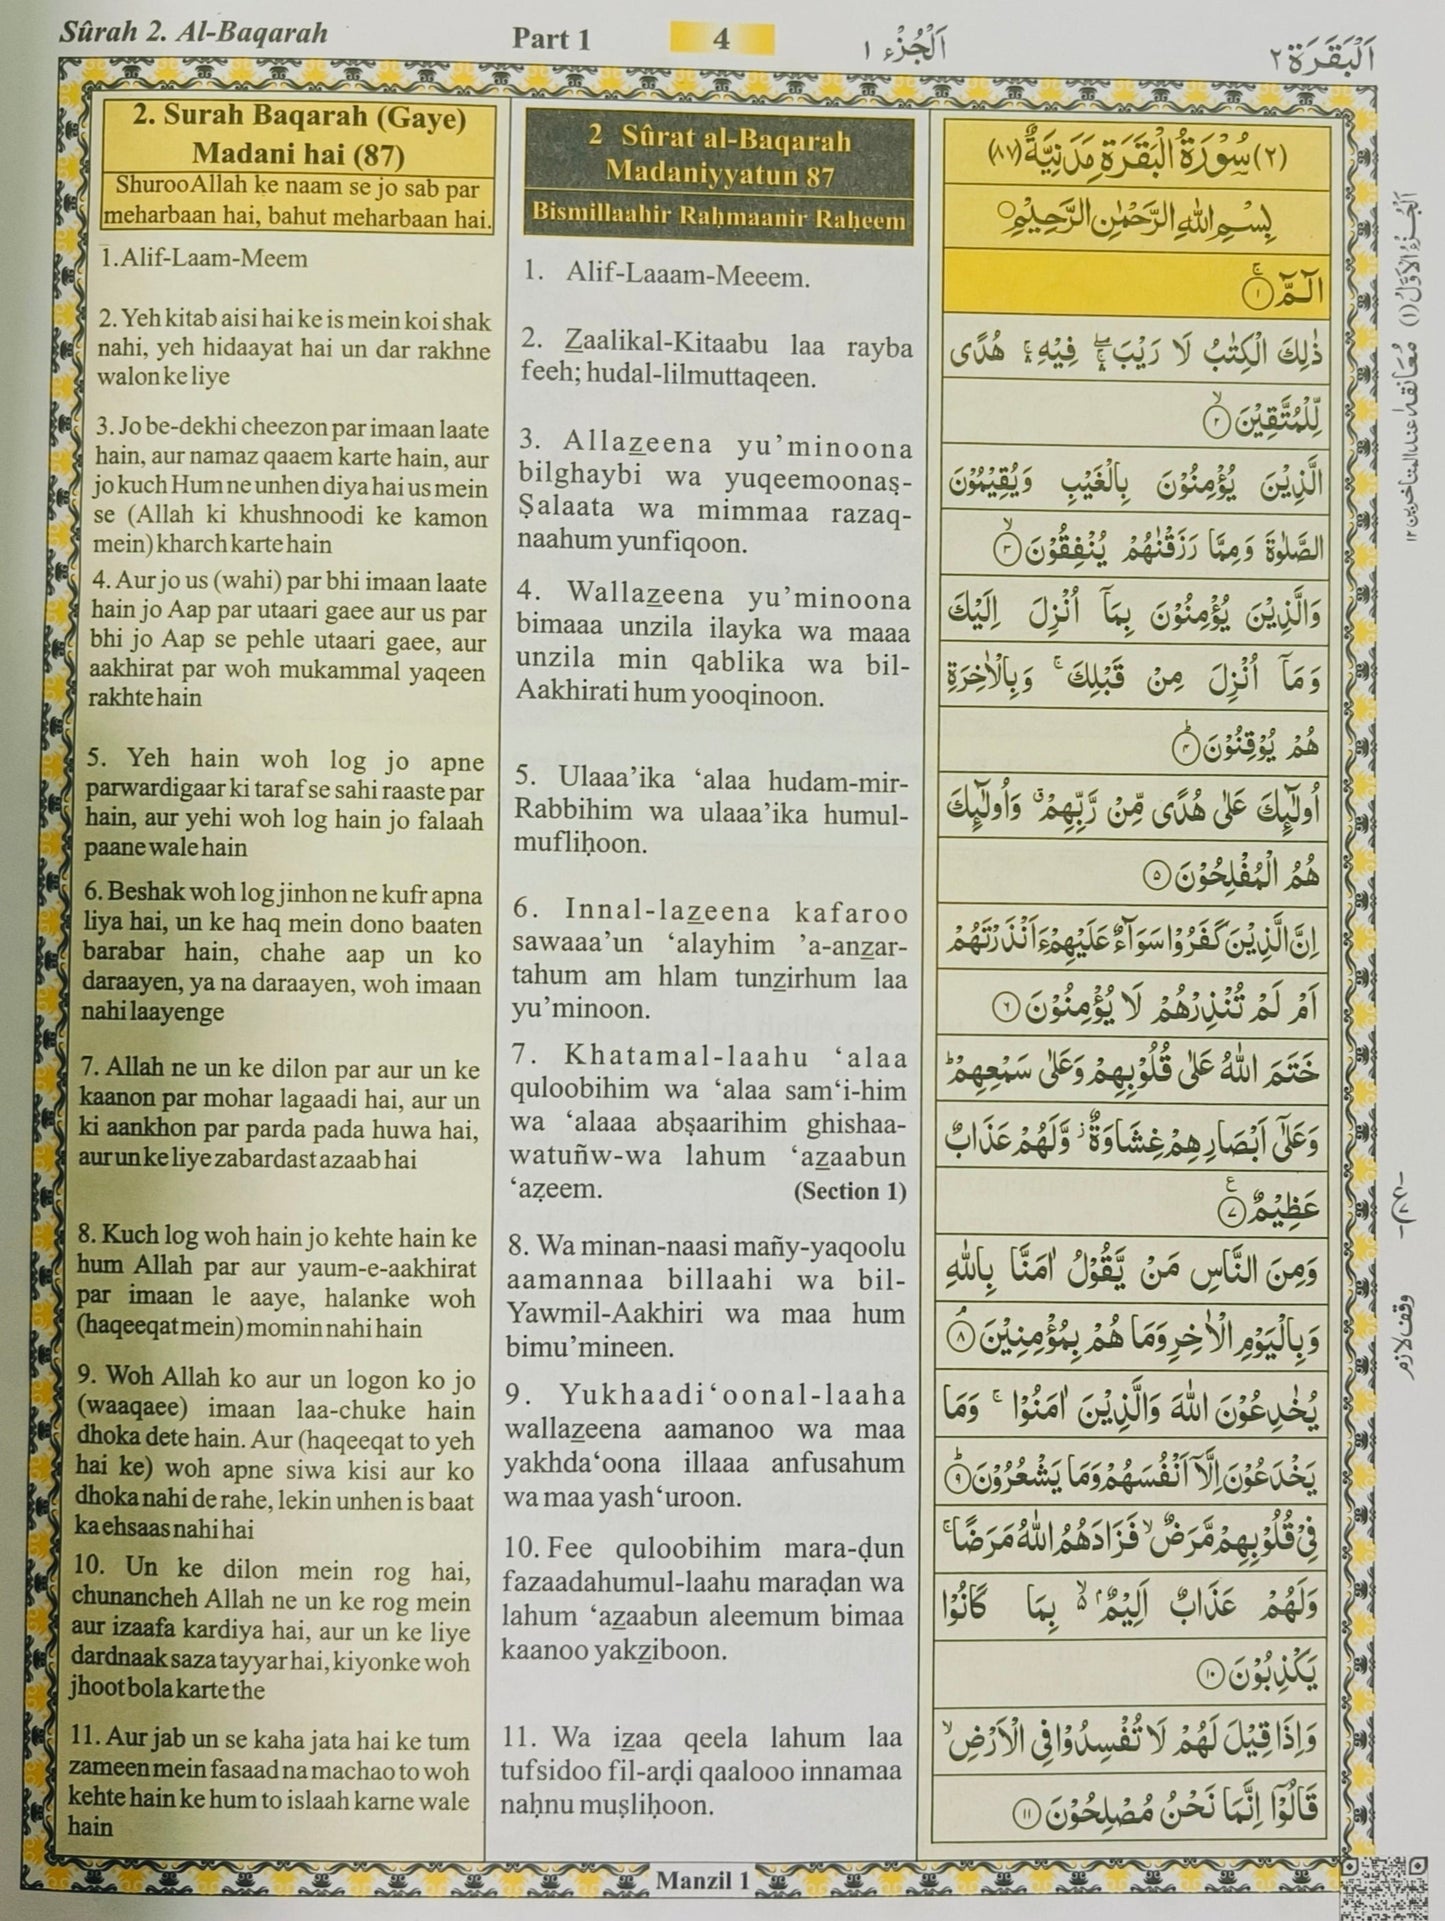 Sûrah 2. Al-Baqarah
Part 1
4
اَلْجُزْء ١
اَلْبَقَرَة ٢
2. Surah Baqarah (Gaye)
Madani hai (87)
Shuroo Allah ke naam se jo sab par
meharbaan hai, bahut meharbaan hai.
1.Alif-Laam-Meem
2. Yeh kitab aisi hai ke is mein koi shak
nahi, yeh hidaayat hai un dar rakhne
walon ke liye
3. Jo be-dekhi cheezon par imaan laate
hain, aur namaz qaaem karte hain, aur
jo kuch Hum ne unhen diya hai us mein
se (Allah ki khushnoodi ke kamon
mein) kharch karte hain
4. Aur jo us (wahi) par bhi imaan laate
hain jo Aap par utaari gaee aur us par
bhi jo Aap se pehle utaari gaee, aur
aakhirat par woh mukammal yaqeen
rakhte hain
5. Yeh hain woh log jo apne
parwardigaar ki taraf se sahi raaste par
hain, aur yehi woh log hain jo falaah
paane wale hain
6. Beshak woh log jinhon ne kufr apna
liya hai, un ke haq mein dono baaten
barabar hain, chahe aap un ko
daraayen, ya na daraayen, woh imaan
nahi laayenge
7. Allah ne un ke dilon par aur un ke
kaanon par mohar lagaadi hai, aur un
ki aankhon par parda pada huwa hai,
aur un ke liye zabardast azaab hai
8. Kuch log woh hain jo kehte hain ke
hum Allah par aur yaum-e-aakhirat
par imaan le aaye, halanke woh
(haqeeqat mein) momin nahi hain
9. Woh Allah ko aur un logon ko jo
(waaqaee) imaan laa-chuke hain
dhoka dete hain. Aur (haqeeqat to yeh
hai ke) woh apne siwa kisi aur ko
dhoka nahi de rahe, lekin unhen is baat
ka ehsaas nahi hai
10. Un ke dilon mein rog hai,
chunancheh Allah ne un ke rog mein
aur izaafa kardiya hai, aur un ke liye
dardnaak saza tayyar hai, kiyonke woh
jhoot bola karte the
11. Aur jab un se kaha jata hai ke tum
zameen mein fasaad na machao to woh
kehte hain ke hum to islaah karne wale
hain
2 Sûrat al-Baqarah
Madaniyyatun 87
Bismillaahir Raḥmaanir Raḥeem
1. Alif-Laaam-Meeem.
2. Z̲aalikal-Kitaabu laa rayba
feeh; hudal-lilmuttaqeen.
3. Allaz̲eena yu’minoona
bilghaybi wa yuqeemoonaṣ-
Ṣalaata wa mimmaa razaq-
naahum yunfiqoon.
4. Wallaz̲eena yu’minoona
bimaaa unzila ilayka wa maaa
unzila min qablika wa bil-
Aakhirati hum yooqinoon.
5. Ulaaa’ika ‘alaa hudam-mir-
Rabbihim wa ulaaa’ika humul-
mufliḥoon.
6. Innal-laz̲eena kafaroo
sawaaa’un ‘alayhim ’a-anz̲ar-
tahum am hlam tunz̲irhum laa
yu’minoon.
7. Khatamal-laahu ‘alaa
quloobihim wa ‘alaa sam‘i-him
wa ‘alaaa abṣaarihim ghishaa-
watuñw-wa lahum ‘az̲aabun
‘aẓeem. (Section 1)
8. Wa minan-naasi mañy-yaqoolu
aamannaa billaahi wa bil-
Yawmil-Aakhiri wa maa hum
bimu’mineen.
9. Yukhaadi‘oonal-laaha
wallaz̲eena aamanoo wa maa
yakhda‘oona illaaa anfusahum
wa maa yash‘uroon.
10. Fee quloobihim mara-ḍun
fazaadahumul-laahu maraḍan wa
lahum ‘az̲aabun aleemum bimaa
kaanoo yakz̲iboon.
11. Wa iz̲aa qeela lahum laa
tufsidoo fil-arḍi qaalooo innamaa
naḥnu muṣliḥoon.
(٢) سُوْرَةُ الْبَقَرَةِ مَدَنِيَّةٌ (٨٧)
بِسْمِ اللهِ الرَّحْمٰنِ الرَّحِيْمِ
الٓمّٓ ۚ ١
ذٰلِكَ الْكِتٰبُ لَا رَيْبَ ۛۖ فِيْهِ ۛۚ هُدًى
لِّلْمُتَّقِيْنَ ۙ ٢
الَّذِيْنَ يُؤْمِنُوْنَ بِالْغَيْبِ وَيُقِيْمُوْنَ
الصَّلٰوةَ وَمِمَّا رَزَقْنٰهُمْ يُنْفِقُوْنَ ۙ ٣
وَالَّذِيْنَ يُؤْمِنُوْنَ بِمَآ اُنْزِلَ اِلَيْكَ
وَمَآ اُنْزِلَ مِنْ قَبْلِكَ ۚ وَبِالْاٰخِرَةِ
هُمْ يُوْقِنُوْنَ ؕ ٤
اُولٰٓئِكَ عَلٰى هُدًى مِّنْ رَّبِّهِمْ ۗ وَاُولٰٓئِكَ
هُمُ الْمُفْلِحُوْنَ ٥
اِنَّ الَّذِيْنَ كَفَرُوْا سَوَآءٌ عَلَيْهِمْ ءَاَنْذَرْتَهُمْ
اَمْ لَمْ تُنْذِرْهُمْ لَا يُؤْمِنُوْنَ ٦
خَتَمَ اللهُ عَلٰى قُلُوْبِهِمْ وَعَلٰى سَمْعِهِمْ ؕ
وَعَلٰٓى اَبْصَارِهِمْ غِشَاوَةٌ ؗ وَّلَهُمْ عَذَابٌ
عَظِيْمٌ ٧ ع
وَمِنَ النَّاسِ مَنْ يَّقُوْلُ اٰمَنَّا بِاللهِ
وَبِالْيَوْمِ الْاٰخِرِ وَمَا هُمْ بِمُؤْمِنِيْنَ ۘ ٨
يُخٰدِعُوْنَ اللهَ وَالَّذِيْنَ اٰمَنُوْا ۚ وَمَا
يَخْدَعُوْنَ اِلَّآ اَنْفُسَهُمْ وَمَا يَشْعُرُوْنَ ؕ ٩
فِيْ قُلُوْبِهِمْ مَّرَضٌ ۙ فَزَادَهُمُ اللهُ مَرَضًا ۚ
وَلَهُمْ عَذَابٌ اَلِيْمٌۢ ۙ بِمَا كَانُوْا
يَكْذِبُوْنَ ١٠
وَاِذَا قِيْلَ لَهُمْ لَا تُفْسِدُوْا فِي الْاَرْضِ ۙ
قَالُوْٓا اِنَّمَا نَحْنُ مُصْلِحُوْنَ ١١
اَلْجُزْءُ الْاَوَّلُ (١) مُعَانَقَه ١ عند المتاخرين ١٢
وقف لازم
Manzil 1